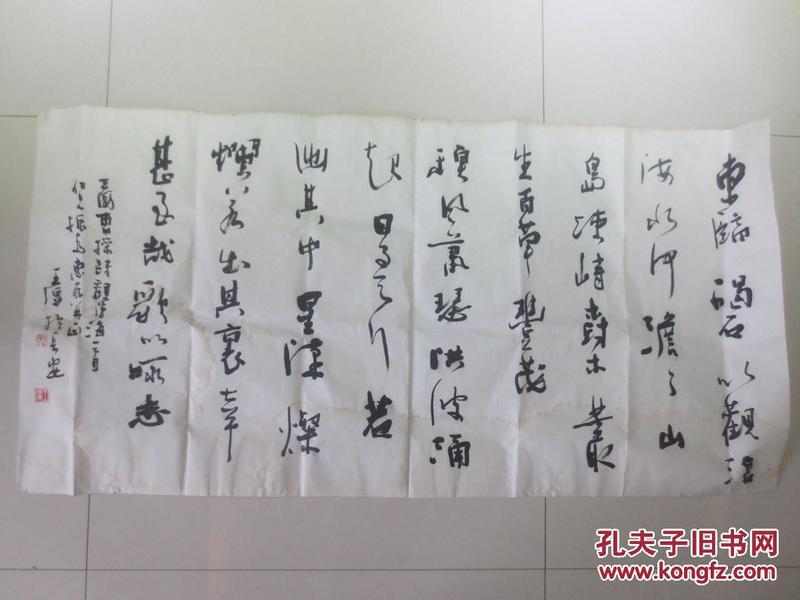 東臨碣石以觀滄
海水何澹々山
島竦峙樹木叢
生百草豐茂
秋風蕭瑟洪波涌
起日月之行若
出其中星漢燦
爛若出其裏幸
甚至哉歌以咏志
三國曹操詩觀滄海一首
正
王於長安
孔夫子旧书网
www.kongfz.com